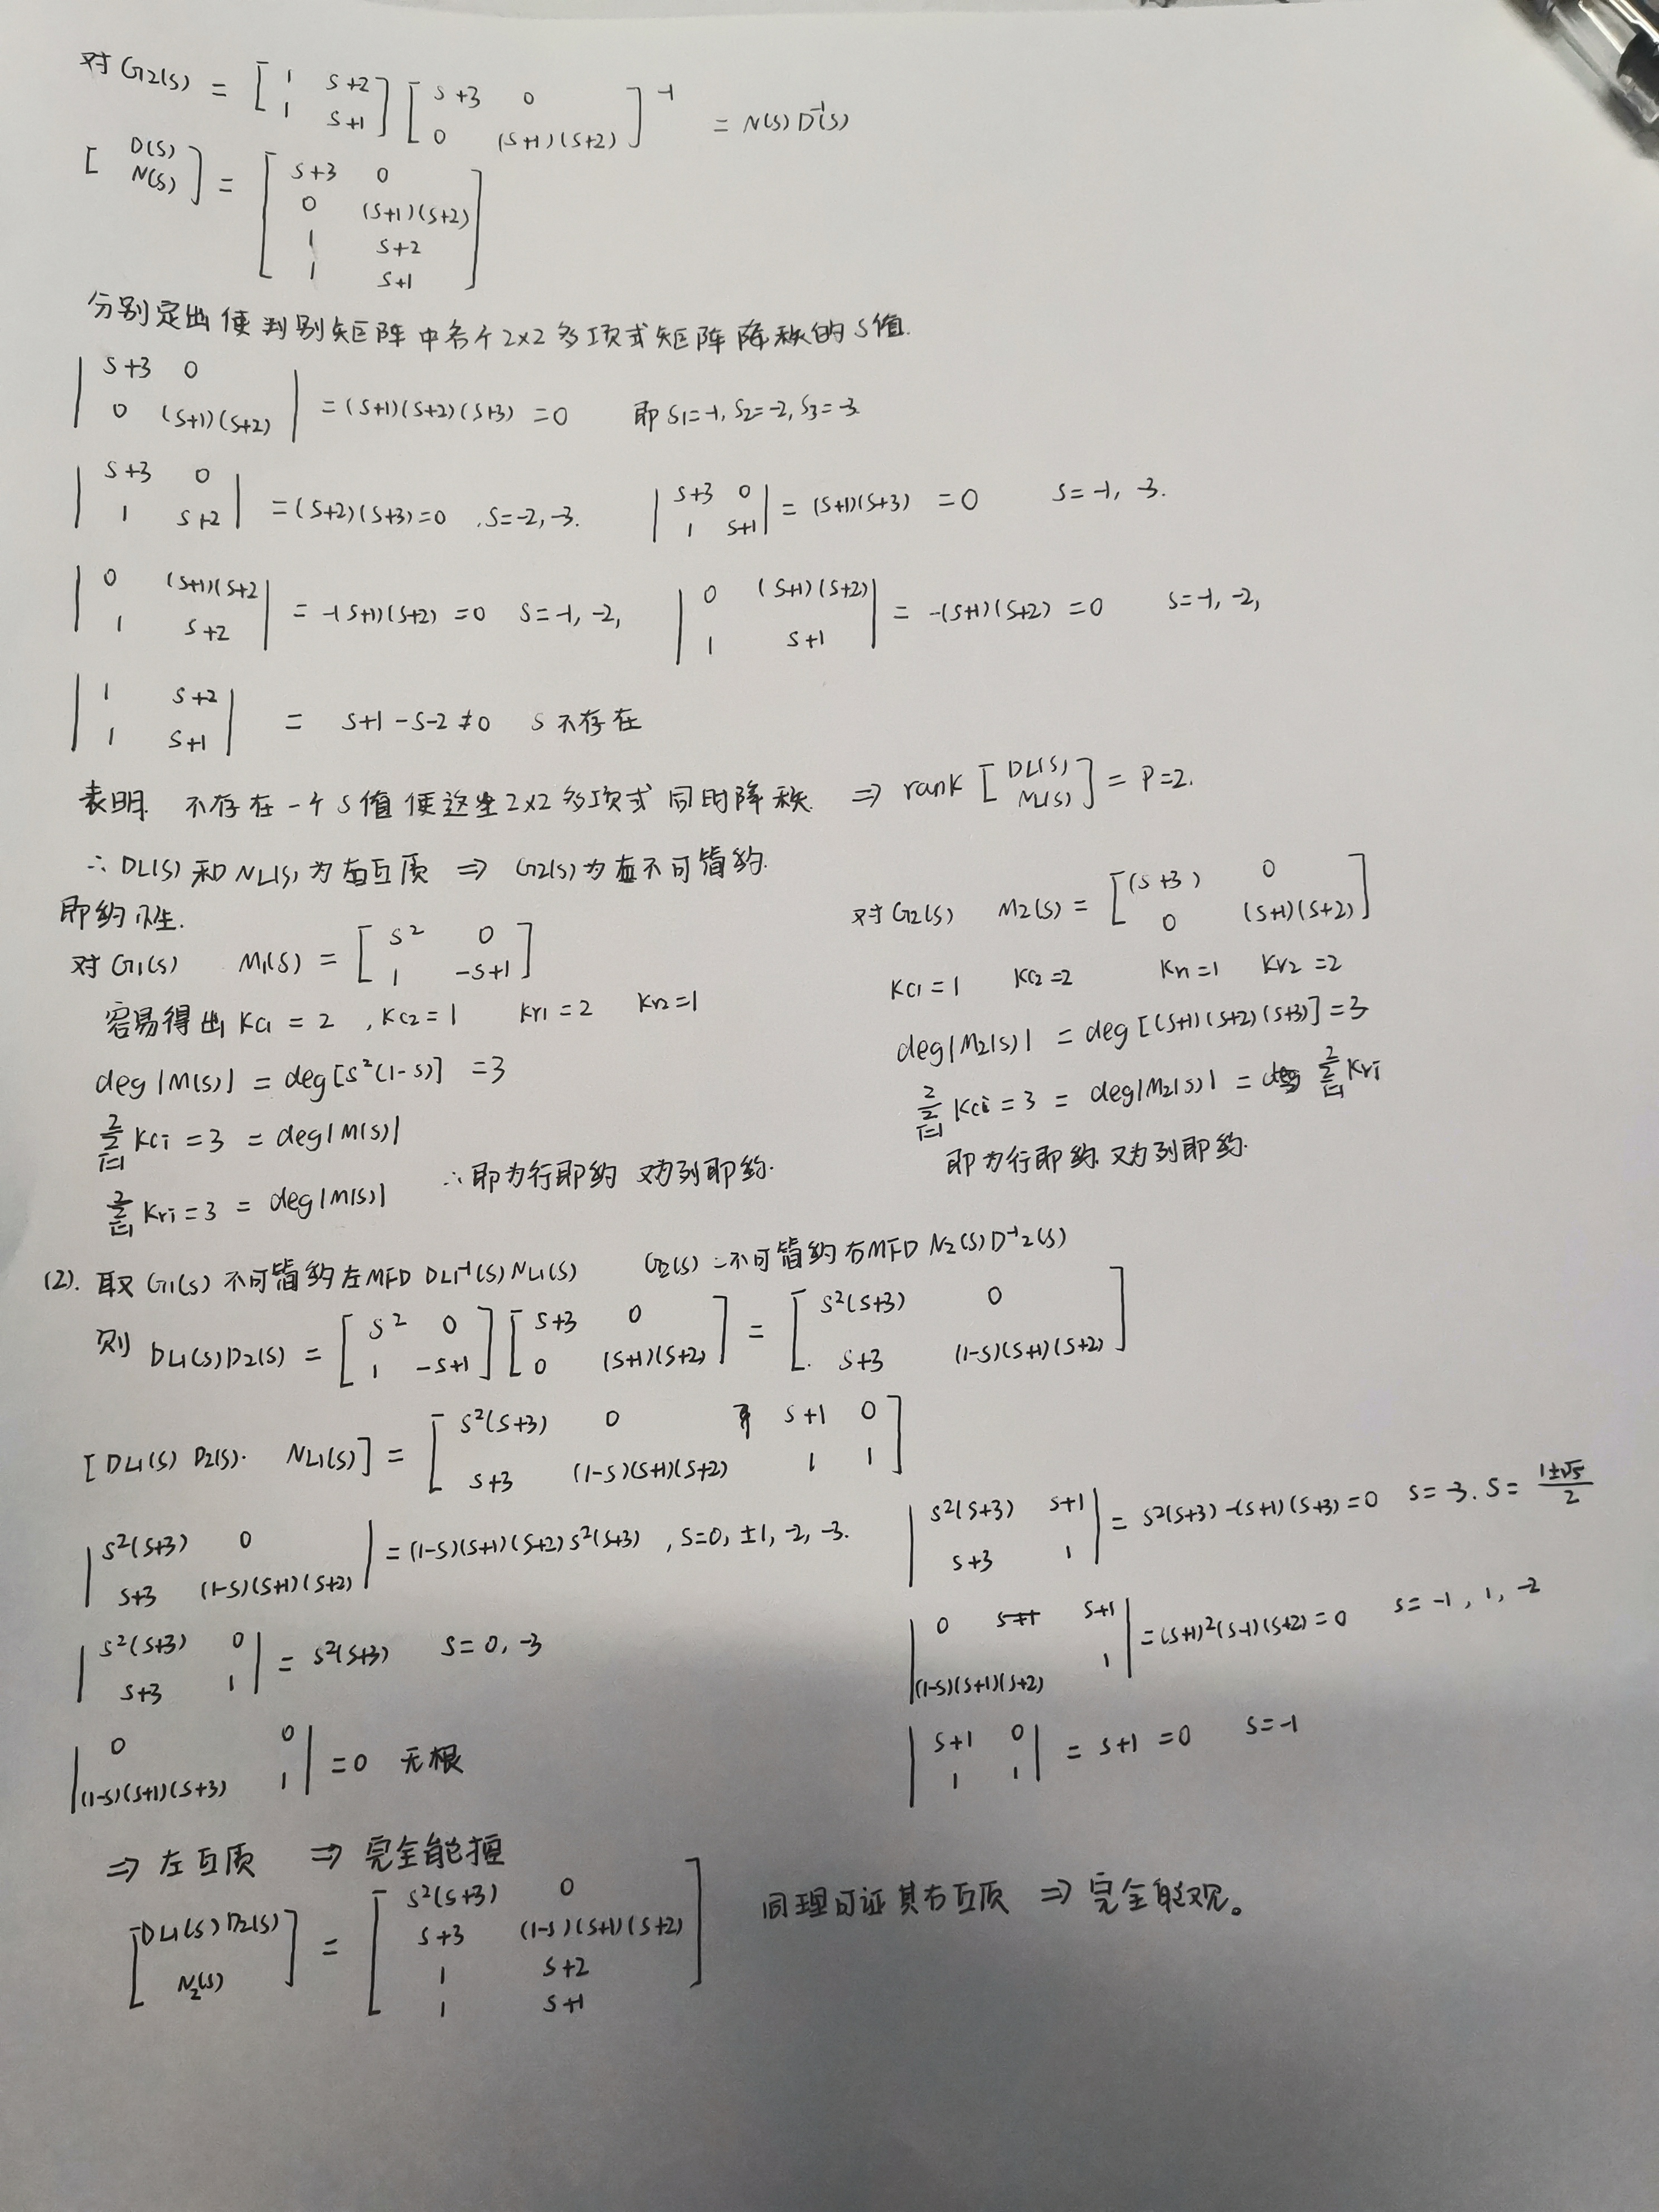 对 G2(s) = [1 s+2; 1 s+1] [s+3 0; 0 (s+1)(s+2)]⁻¹ = N(s) D⁻¹(s)
[D(s); N(s)] = [s+3 0; 0 (s+1)(s+2); 1 s+2; 1 s+1]
分别定出使判别矩阵中各个2×2多项式矩阵降秩的s值.
|s+3 0; 0 (s+1)(s+2)| = (s+1)(s+2)(s+3) = 0 即 s1=-1, s2=-2, s3=-3
|s+3 0; 1 s+2| = (s+2)(s+3)=0 , s=-2, -3. |s+3 0; 1 s+1| = (s+1)(s+3) = 0 s=-1, -3.
|0 (s+1)(s+2; 1 s+2| = -(s+1)(s+2) = 0 s=-1, -2, |0 (s+1)(s+2); 1 s+1| = -(s+1)(s+2) = 0 s=-1, -2,
|1 s+2; 1 s+1| = s+1-s-2≠0 s不存在
表明. 不存在一个s值使这些2×2多项式同时降秩 ⇒ rank [DL(s); NL(s)] = P=2.
∴ DL(s)和NL(s)为右互质 ⇒ G2(s)为右不可简约.
即约性.
对G1(s) M1(s) = [s² 0; 1 -s+1]
容易得出 Kc1 = 2 , Kc2 = 1 Kr1 = 2 Kr2 = 1
deg|M(s)| = deg[s²(1-s)] = 3
Σ(i=1→2) Kci = 3 = deg|M(s)|
Σ(i=1→2) Kri = 3 = deg|M(s)| ∴即为行即约 又为列即约.
对G2(s) M2(s) = [(s+3) 0; 0 (s+1)(s+2)]
Kc1 = 1 Kc2 = 2 Kr1 = 1 Kr2 = 2
deg|M2(s)| = deg[(s+1)(s+2)(s+3)] = 3
Σ(i=1→2) Kci = 3 = deg|M2(s)| = Σ(i=1→2) Kri
即为行即约 又为列即约.
(2). 取G1(s)不可简约左MFD DL1⁻¹(s)NL1(s) G2(s)=不可简约右MFD N2(s)D⁻¹2(s)
则 DL1(s)D2(s) = [s² 0; 1 -s+1] [s+3 0; 0 (s+1)(s+2)] = [s²(s+3) 0; s+3 (1-s)(s+1)(s+2)]
[DL1(s) D2(s). NL1(s)] = [s²(s+3) 0 s+1 0; s+3 (1-s)(s+1)(s+2) 1 1]
|s²(s+3) 0; s+3 (1-s)(s+1)(s+2)| = (1-s)(s+1)(s+2)s²(s+3) , s=0, ±1, -2, -3. |s²(s+3) s+1; s+3 1| = s²(s+3)-(s+1)(s+3)=0 s=-3. s=(1±√5)/2
|s²(s+3) 0; s+3 1| = s²(s+3) s=0, -3 |0 s+1; (1-s)(s+1)(s+2) 1| = (s+1)²(s-1)(s+2)=0 s=-1, 1, -2
|0 0; (1-s)(s+1)(s+3) 1| = 0 无根 |s+1 0; 1 1| = s+1 = 0 s=-1
⇒ 左互质 ⇒ 完全能控
[DL1(s)D2(s); N2(s)] = [s²(s+3) 0; s+3 (1-s)(s+1)(s+2); 1 s+2; 1 s+1] 同理可证其右互质 ⇒ 完全能观。